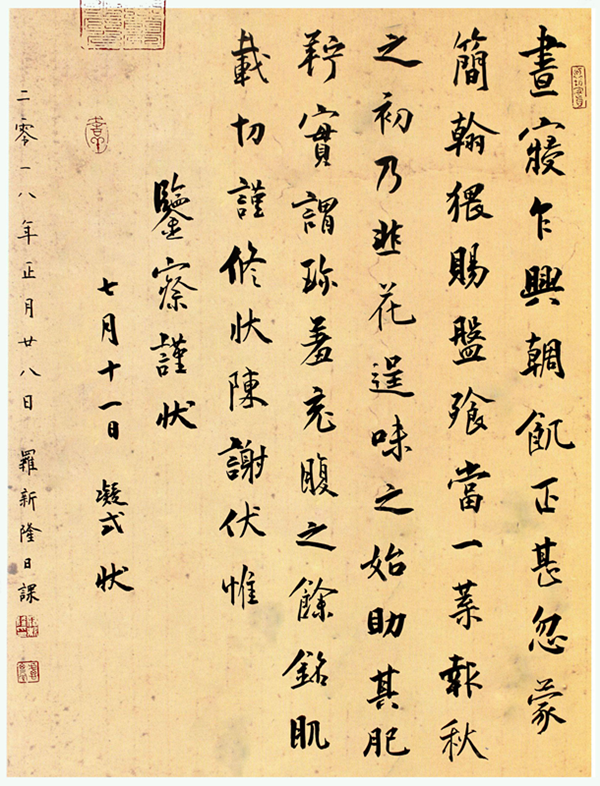 晝寢乍興輖飢正甚忽蒙
簡翰猥賜盤飧當一葉報秋
之初乃韭花逞味之始助其肥
羜實謂珎羞充腹之餘銘肌
載切謹修狀陳謝伏惟
鑒察謹狀
七月十一日 凝式狀
二零一八年正月廿八日 羅新隆日課